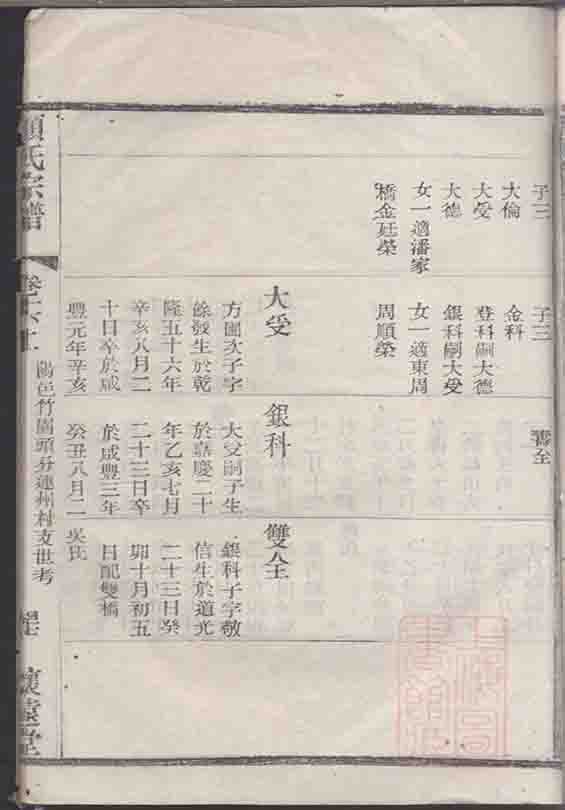 子三
大倫
大受
大德
女一適潘家
橋金廷榮
子三
金科
登科嗣大德
銀科嗣大受
女一適東周
周順榮
大受
方圓次子字
餘發生於乾
隆五十六年
辛亥八月二
十日卒於咸
豐元年辛亥
銀科
大受嗣子生
於嘉慶二十
年乙亥七月
二十三日卒
於咸豐三年
癸丑八月二
雙全
銀科子字敬
信生於道光
二十三日癸
卯十月初五
日配雙橋
吳氏
氏宗譜
陽邑竹園頭分連州村支世考
懷遠堂